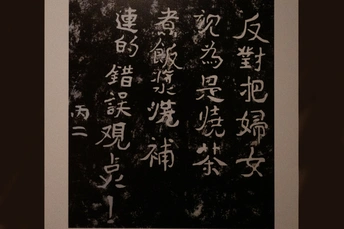 反對把婦女
視為是燒茶
煮飯漿洗補
連的錯誤观点！
丙二